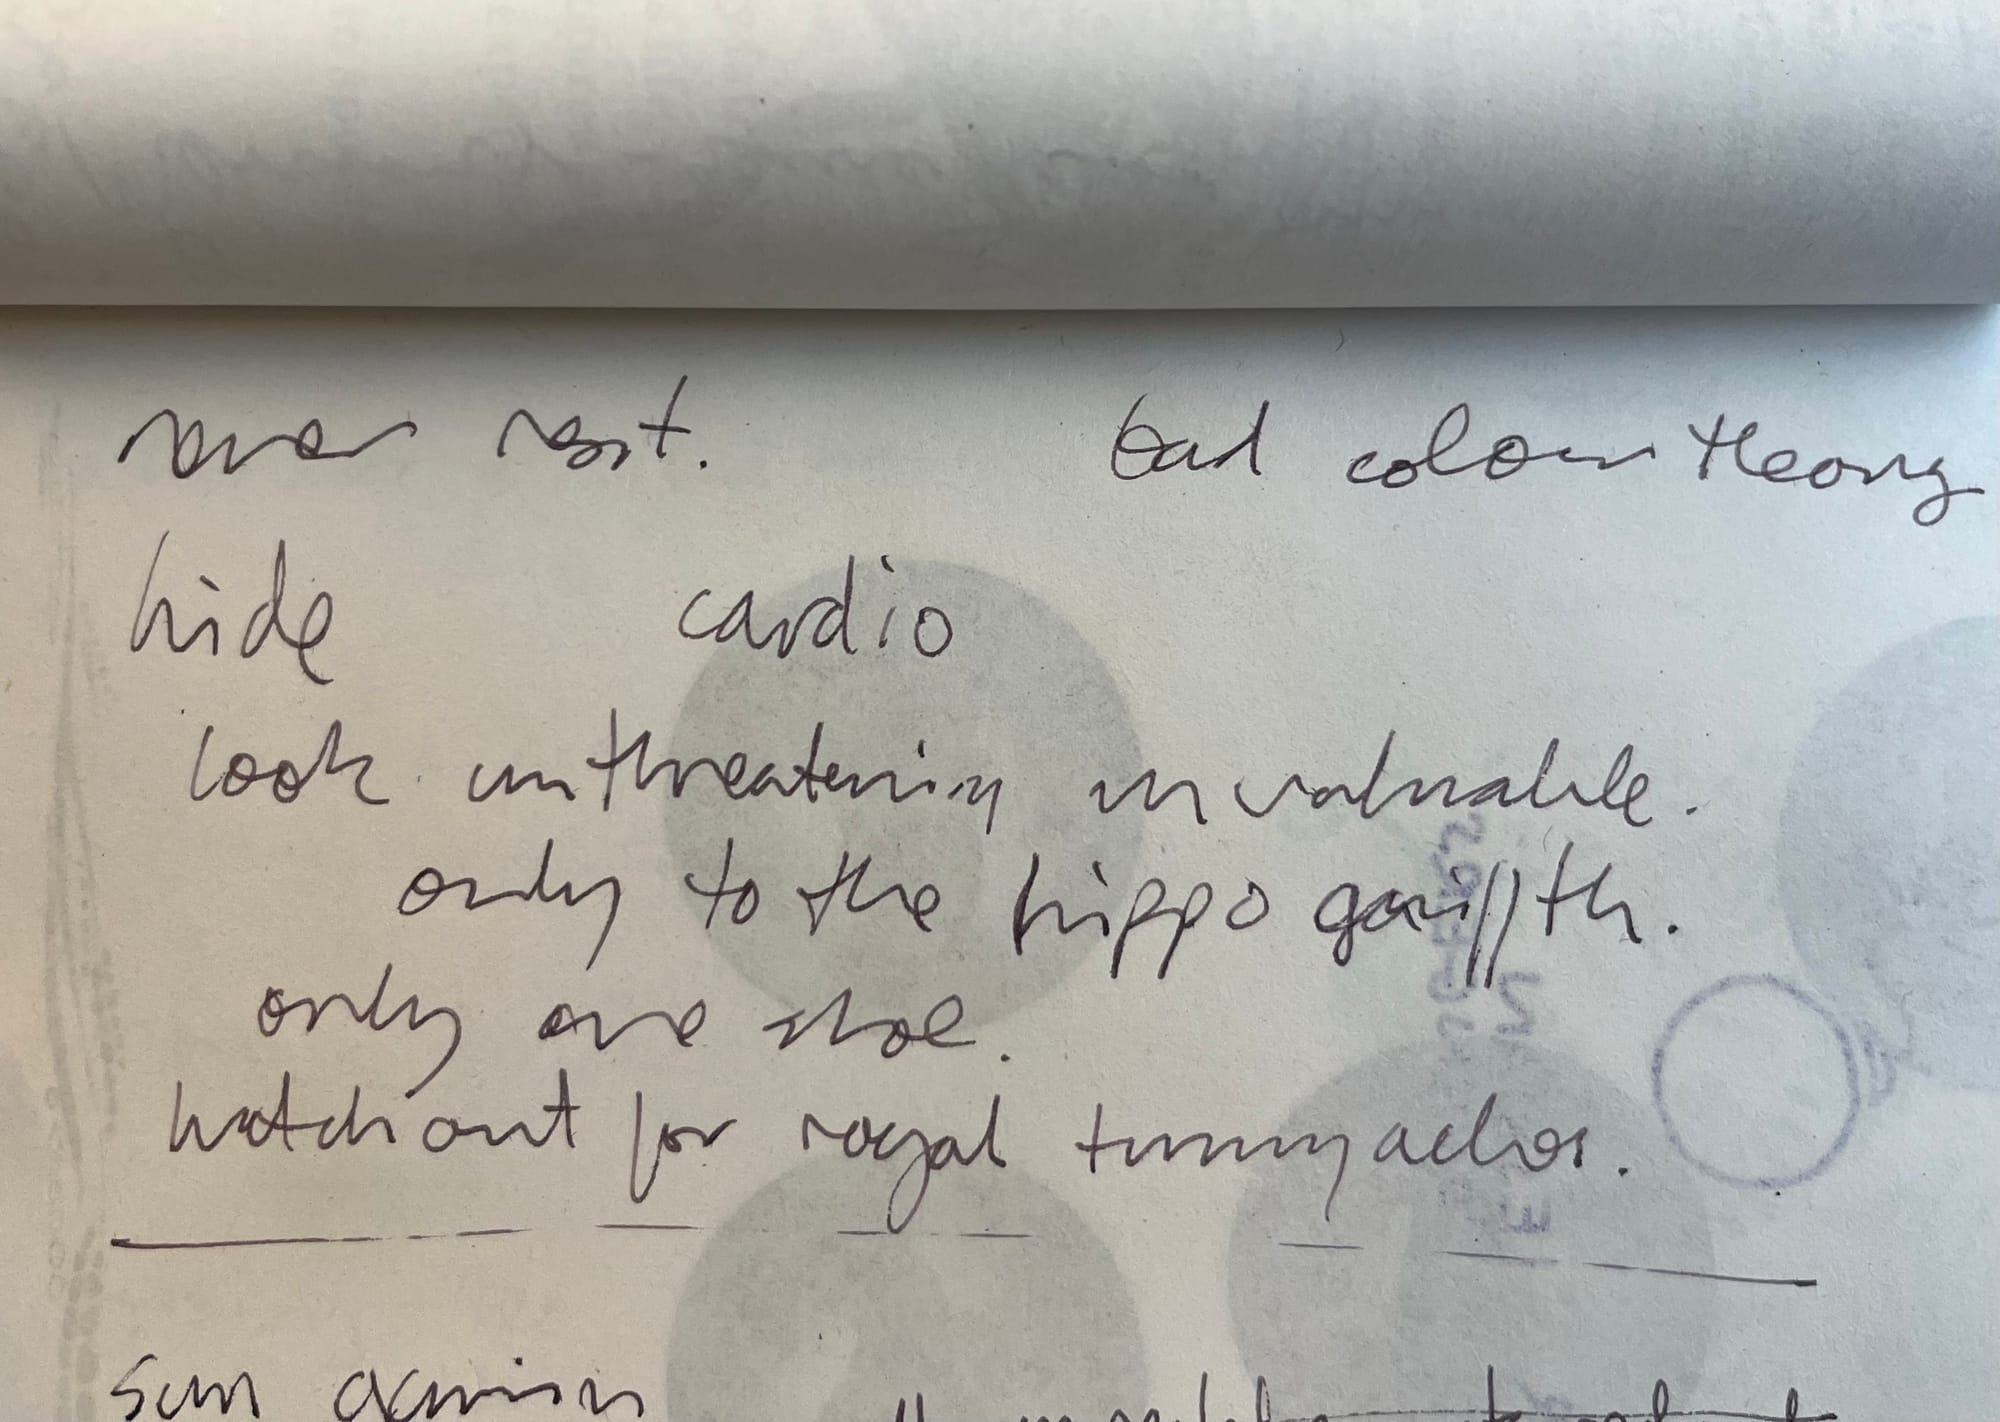 never rest. bad colour theory
hide cardio
look unthreatening invaluable.
only to the hippo
only one shoe.
watch out for royal tummyaches.